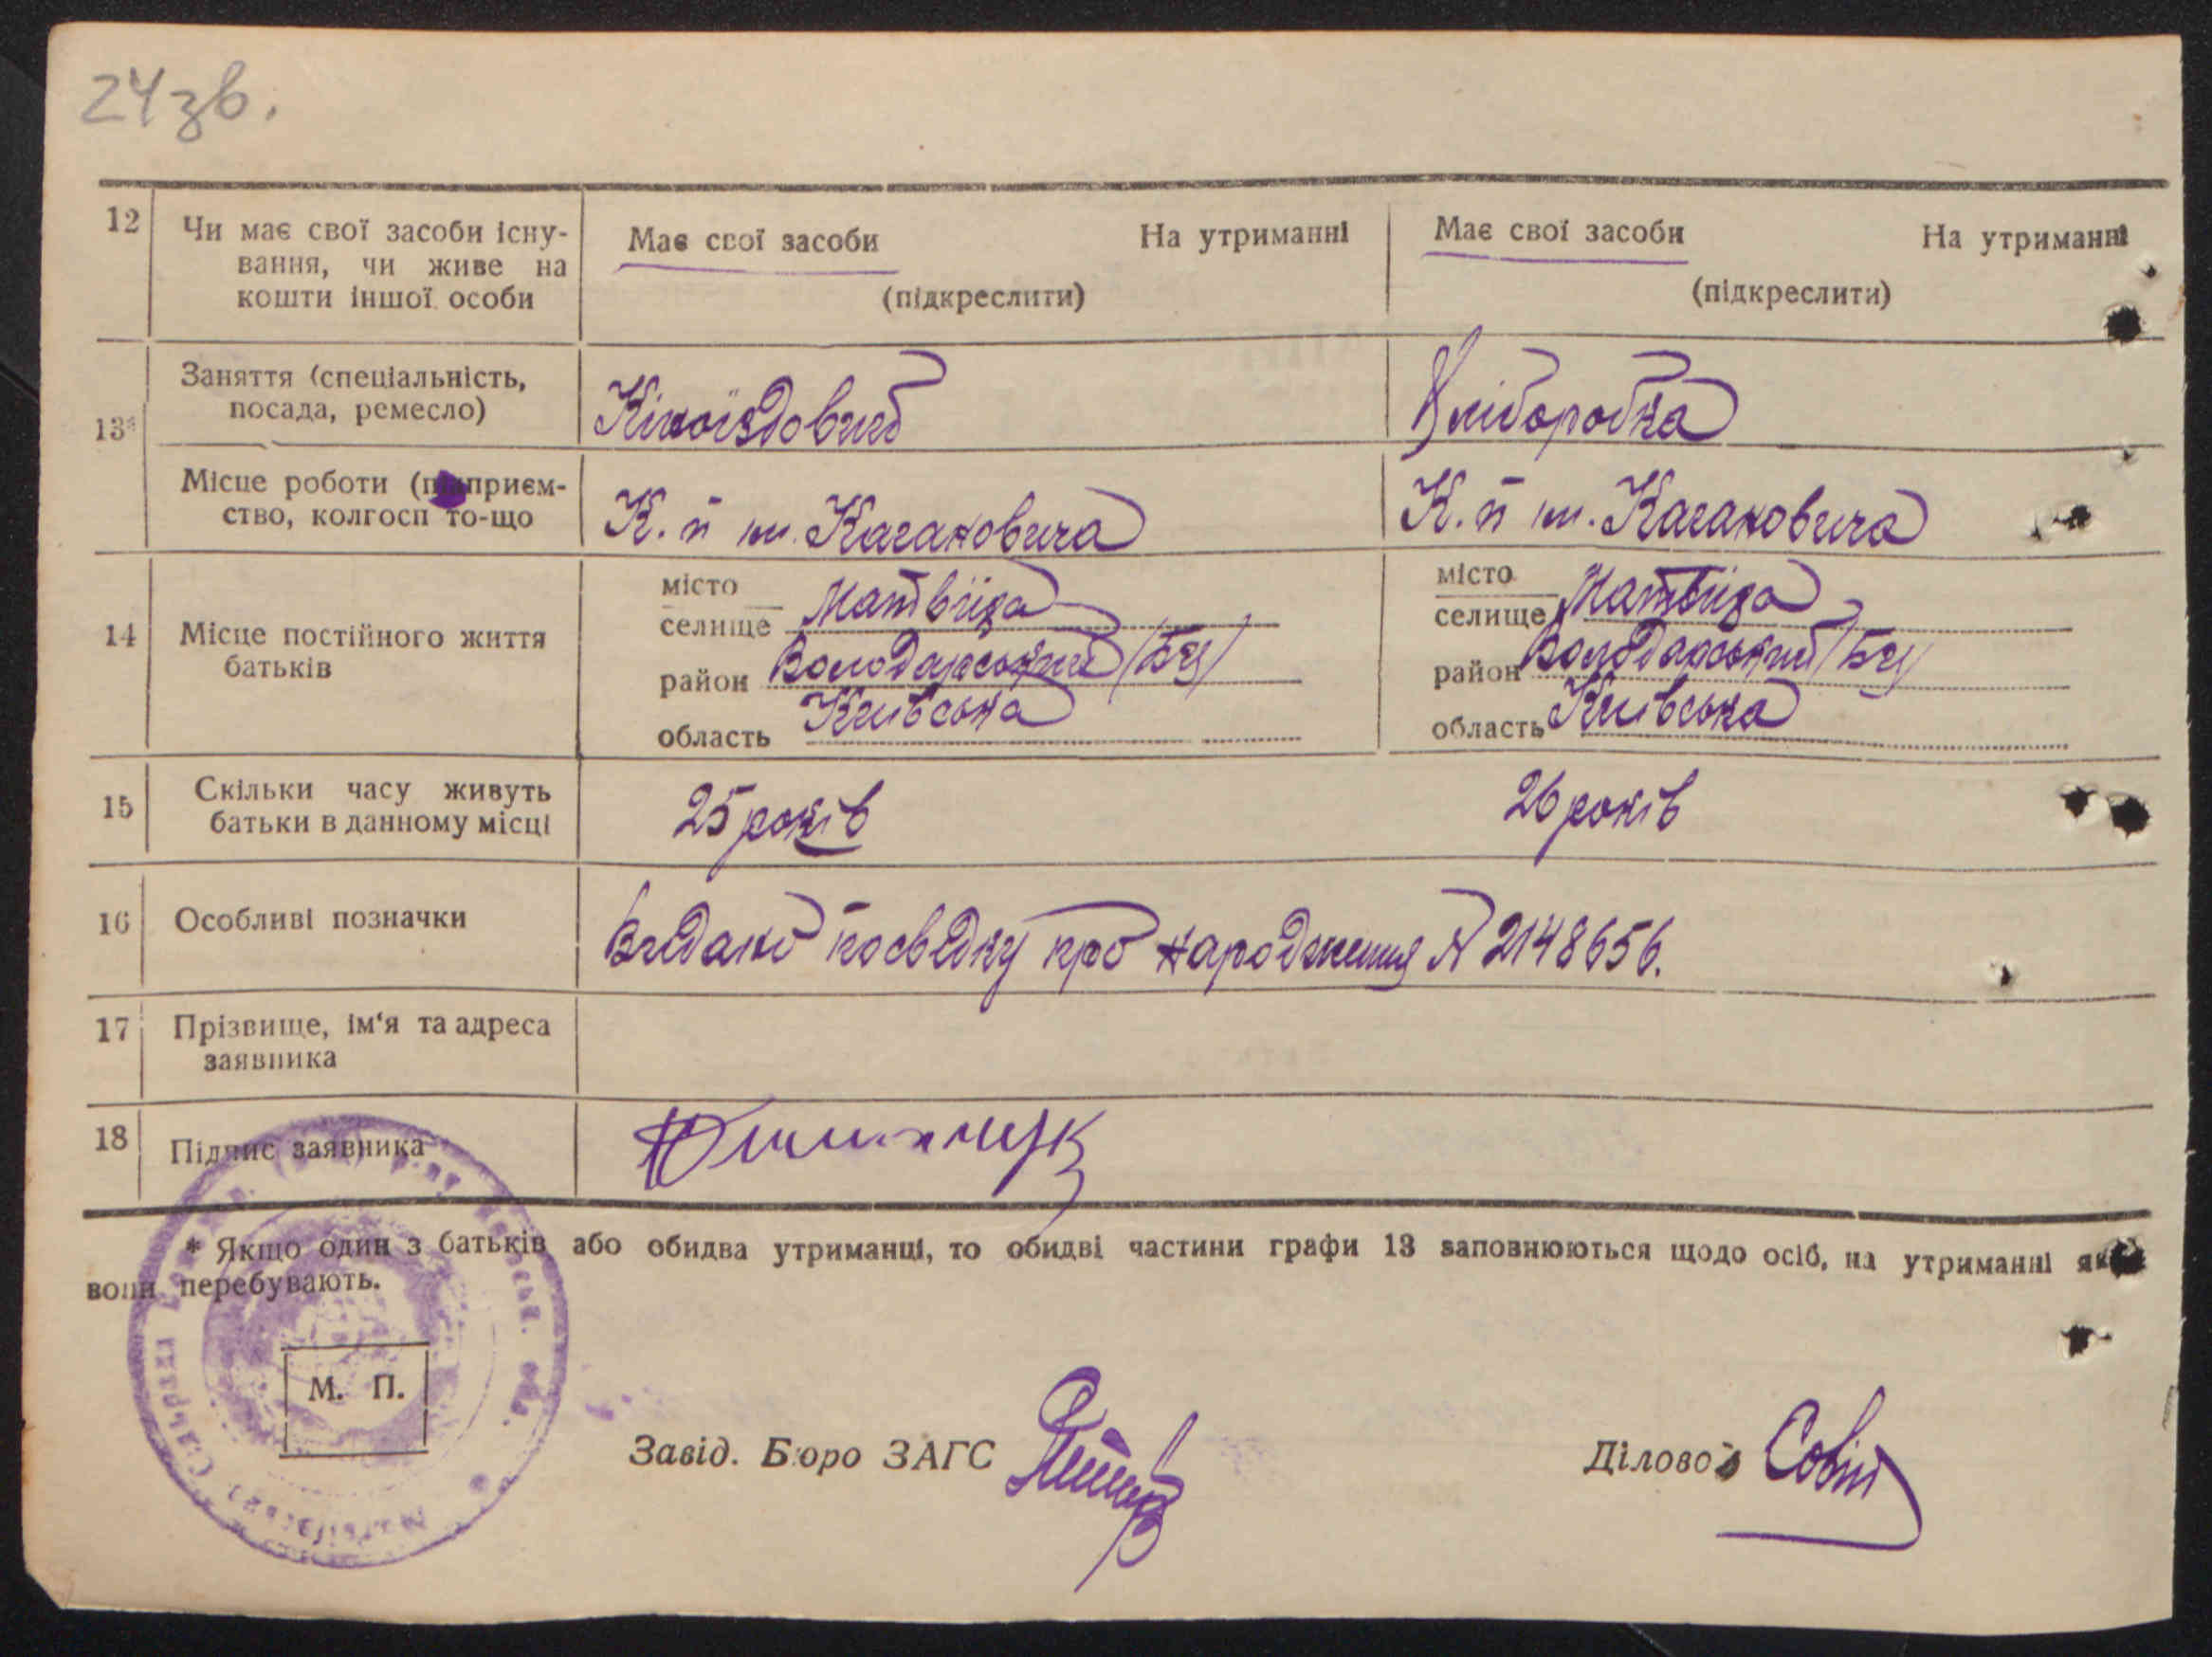 24 зв.
12 Чи має свої засоби існу- Має свої засоби На утриманні Має свої засоби На утриманні
вання, чи живе на
кошти іншої особи (підкреслити) (підкреслити)
13* Заняття (спеціальність,
посада, ремесло) Хліборобка
Місце роботи (підприєм-
ство, колгосп то-що К. п ім. Кагановича К. п ім. Кагановича
14 Місце постійного життя
батьків
місто
селище Матвіїха
район Володарський /БЦ/
область Київська
місто
селище Матвіїха
район Володарський /БЦ/
область Київська
15 Скільки часу живуть
батьки в данному місці 25 років 26 років
16 Особливі позначки Видано посвідку про народження № 2148656.
17 Прізвище, ім'я та адреса
заявника
18 Підпис заявника
* Якщо один з батьків або обидва утриманці, то обидві частини графи 13 заповнюються щодо осіб, на утриманні яких
вони перебувають.
М. П.
Завід. Бюро ЗАГС
Діловод